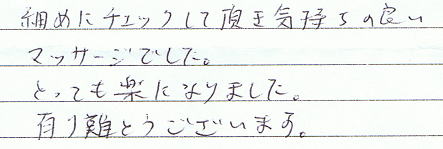 細めにチェックして頂き気持ちの良い
マッサージでした。
とっても楽になりました。
有り難とうございます。